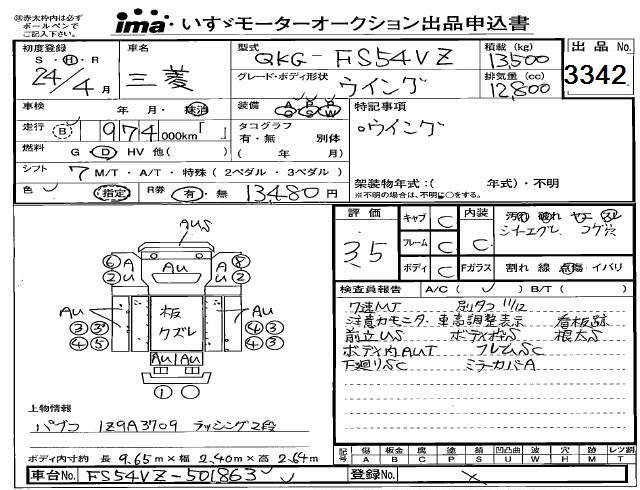 ※赤太枠内は必ず
ボールペンで
ご記入下さい。
ima・いすゞモーターオークション出品申込書
初度登録
S・H・R
24年4月
車名
三菱
型式
QKG-FS54VZ
グレード・ボディ形状
ウイング
積載(kg)
13,500
排気量(cc)
12,800
出品No.
3342
車検 年 月・抹消
装備 A P R C S W
特記事項
○ウイング
走行 B 974,000km「 」
タコグラフ
有・無 別体
( 年 月)
燃料 G・D・HV 他( )
シフト 7 M/T・A/T・特殊(2ペダル・3ペダル)
架装物年式:( 年式)・不明
※不明の場合は、不明に○をする。
色 (指定) R券 有・無 13,480円
評価
3.5
キャブ C
フレーム C
ボディ C
内装
C
Fガラス 割れ 線 点傷・イバリ
シートエグレ コゲ穴
検査員報告 A/C( ) B/T( )
7速MT 別タコ 11/12
注意カモニタ・車高調整表示 看板跡
前立US ボディ枠S 根太S
ボディ内AUT フレームSC
下廻りSC ミラーカバーA
AUS
⑥A
②U
AU
A⑤
U②
AU
③③
④⑤
板
クズレ
AU
④③
⑤③
AU AU
①
上物情報
パブコ 1Z9A3709 ラッシング2段
ボディ内寸約 長 9.65m×幅 2.40m×高 2.64m
車台No. FS54VZ-501863
登録No.
記号
傷 板金 腐 塗 錆 凹凸曲 波 穴 跡 レンズ割
A B C P S U W H M T